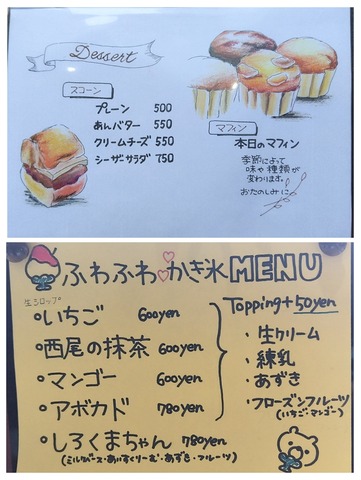 Dessert
スコーン
プレーン 500
あんバター 550
クリームチーズ 550
シーザーサラダ 750
マフィン
本日のマフィン
季節によって
味や種類が
変わります。
おたのしみに
ふわふわ かき氷 MENU
生シロップ
いちご 600yen
西尾の抹茶 600yen
マンゴー 600yen
アボカド 780yen
しろくまちゃん 780yen
(ミルクベース・あいすくりーむ・あずき・フルーツ)
Topping+50yen
・生クリーム
・練乳
・あずき
・フローズンフルーツ
(いちご・マンゴー)